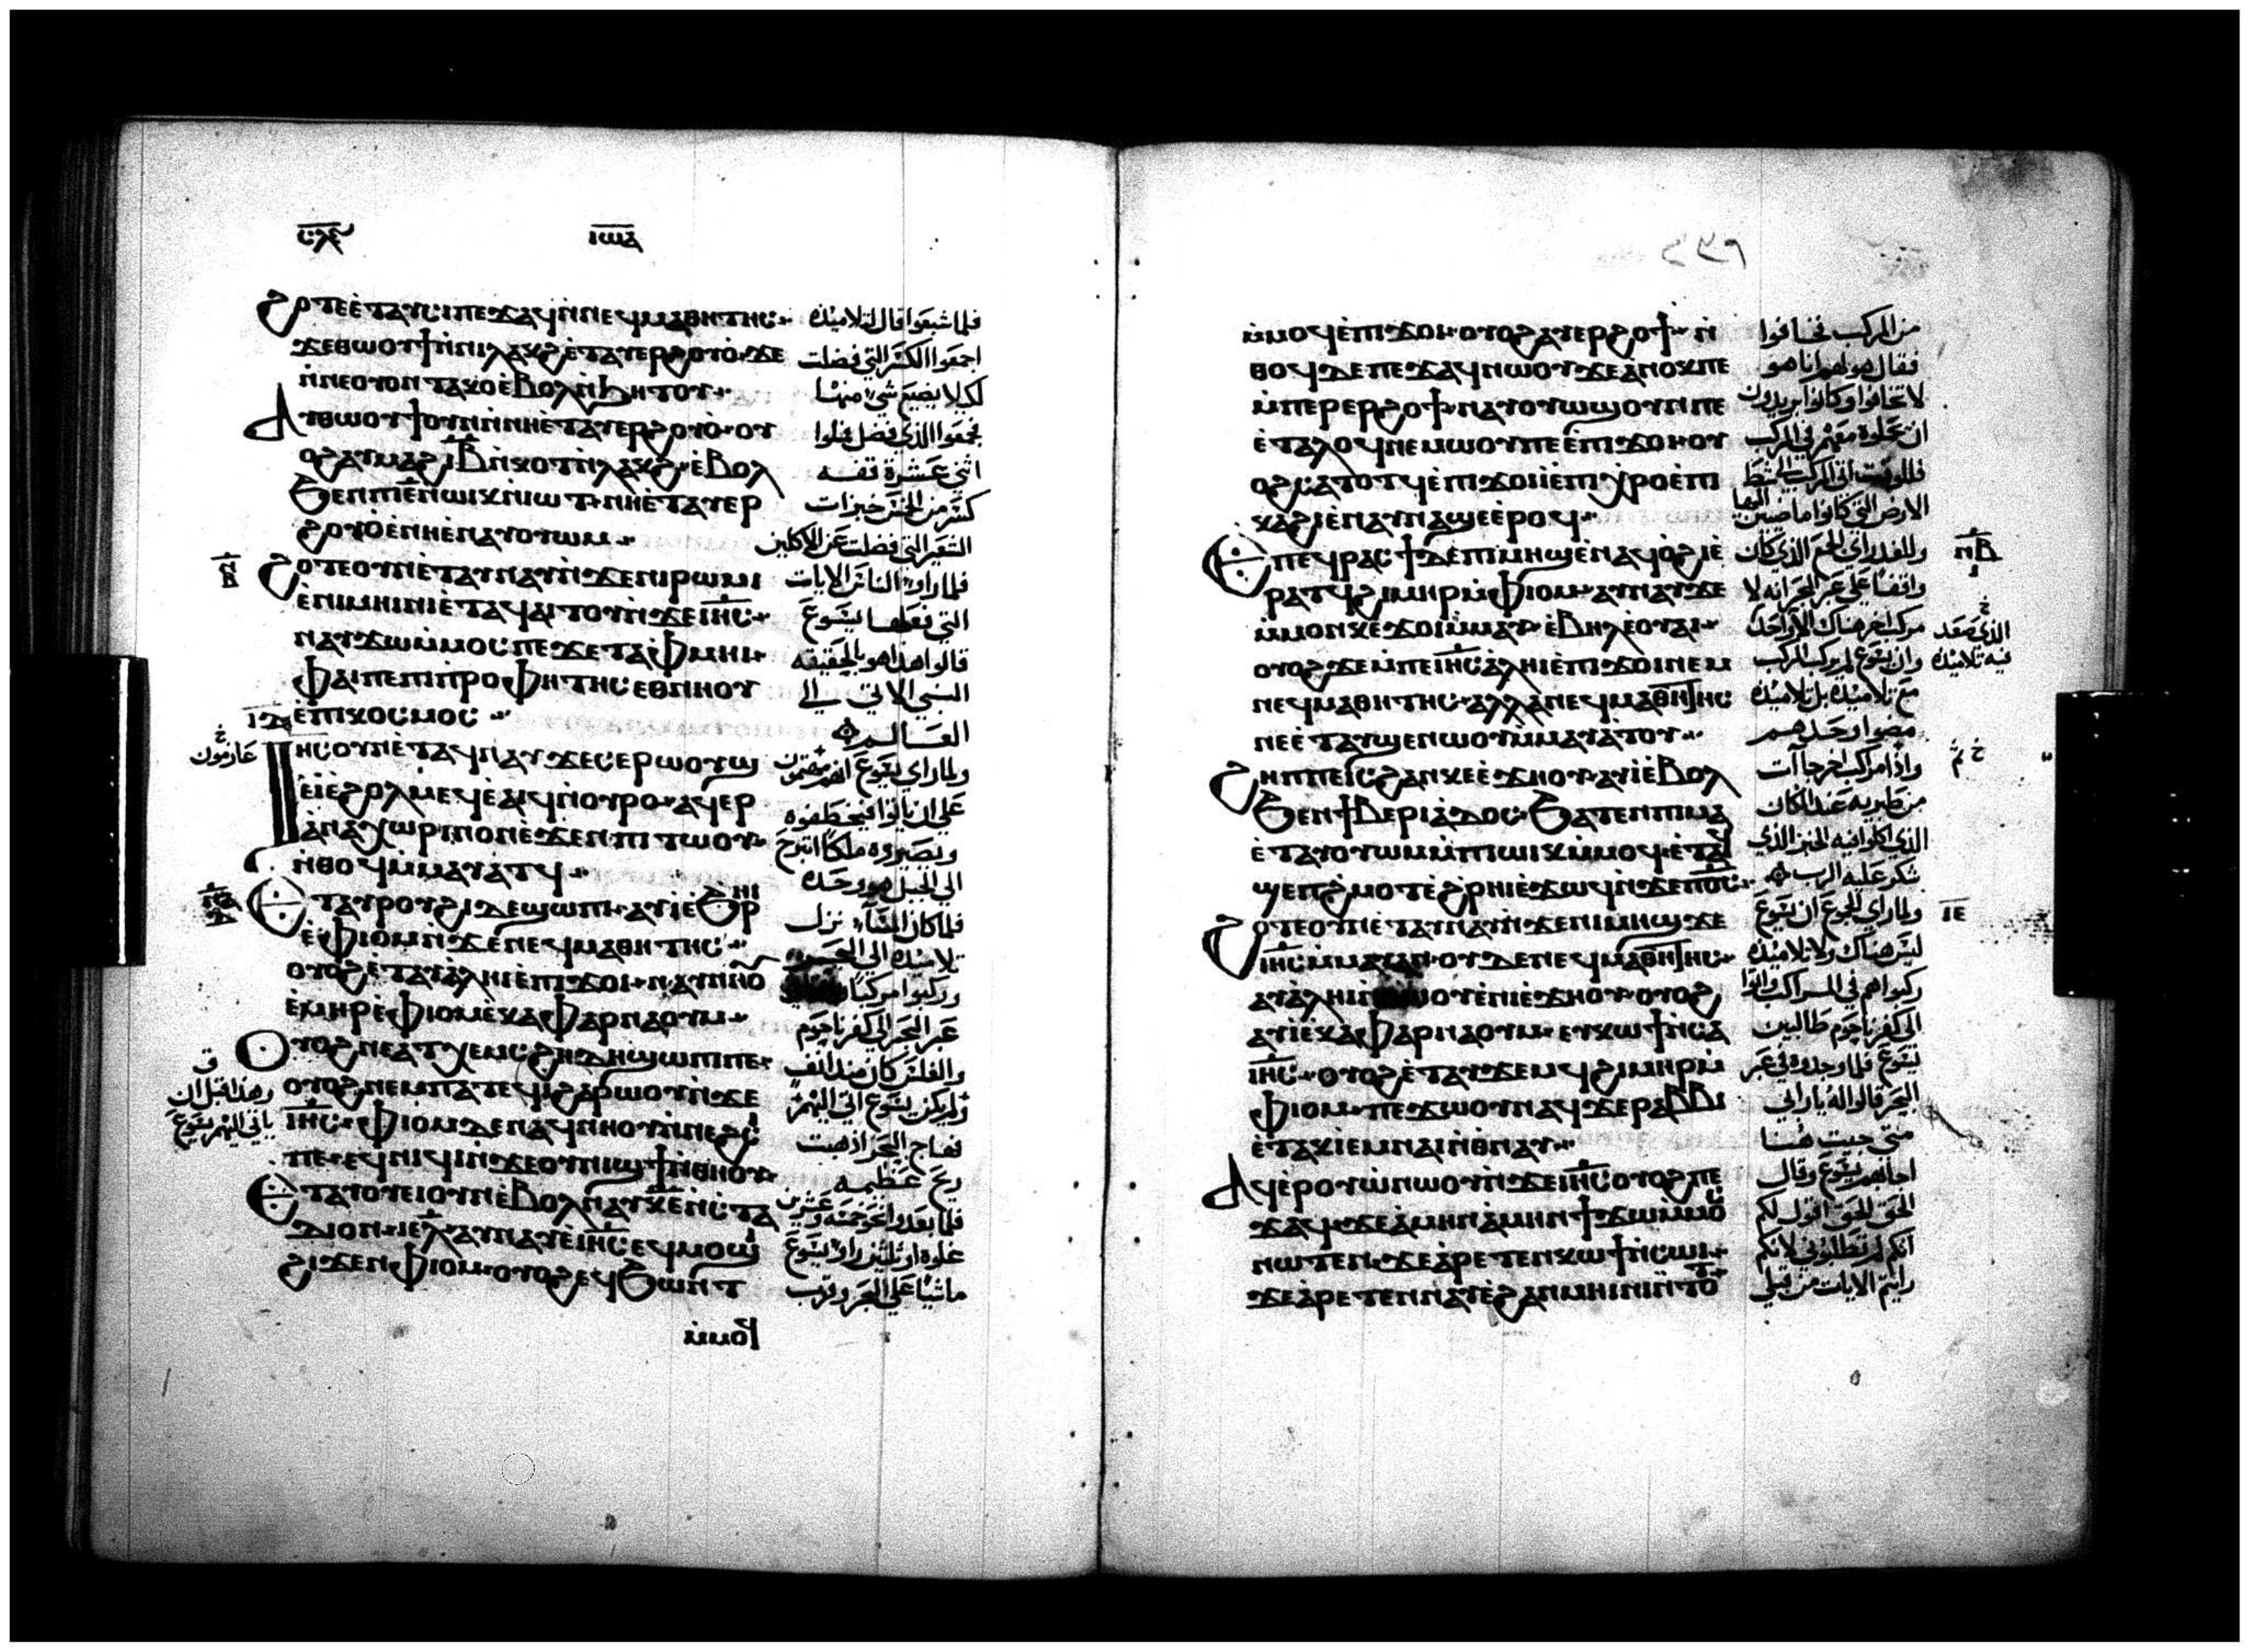 ⲥⲗⲋ
ⲓⲱⲁ
ϩⲟⲧⲉ ⲉ̀ⲧⲁⲩⲥⲓ ⲡⲉϫⲁϥ ⲛ̀ⲛⲉϥⲙⲁⲑⲏⲧⲏⲥ
ϫⲉ ⲑⲱⲟⲩϯ ⲛ̀ⲛⲓⲗⲁⲕϩ ⲉ̀ⲧⲁⲩⲉⲣϩⲟⲩⲟ̀ ϫⲉ
ⲛ̀ⲛⲉ ⲟⲩⲟⲛ ⲧⲁⲕⲟ ⲉ̀ⲃⲟⲗ ⲛ̀ϧⲏⲧⲟⲩ
ⲁⲩⲑⲱⲟⲩϯ ⲟⲩⲛ ⲛ̀ⲛⲏ ⲉ̀ⲧⲁⲩⲉⲣϩⲟⲩⲟ̀ ⲟⲩ
ⲟϩ ⲁⲩⲙⲁϩ ⲓⲃ ⲛ̀ⲕⲟⲧ ⲛ̀ⲗⲁⲕϩ ⲉ̀ⲃⲟⲗ
ϧⲉⲛ ⲡⲓⲉ̄ ⲛ̀ⲱⲓⲕ ⲛ̀ⲓⲱⲧ ⲛⲏ ⲉⲧⲁⲩⲉⲣ
ϩⲟⲩⲟ̀ ⲉ̀ⲛⲏ ⲉ̀ⲛⲁⲩⲟⲩⲱⲙ
ϩⲟⲧⲉ ⲟⲩⲛ ⲉ̀ⲧⲁⲩⲛⲁⲩ ⲛ̀ϫⲉ ⲛⲓⲣⲱⲙⲓ
ⲉ̀ⲛⲓⲙⲏⲓⲛⲓ ⲉ̀ⲧⲁϥⲁⲓⲧⲟⲩ ⲛ̀ϫⲉ ⲓⲏⲥ
ⲛⲁⲩϫⲱ ⲙ̀ⲙⲟⲥ ⲡⲉ ϫⲉ ⲧⲁⲫⲙⲏⲓ
ⲫⲁⲓ ⲡⲉ ⲡⲓⲡⲣⲟⲫⲏⲧⲏⲥ ⲉⲑⲛⲏⲟⲩ
ⲉ̀ⲡⲓⲕⲟⲥⲙⲟⲥ
ⲓⲏⲥ ⲟⲩⲛ ⲉ̀ⲧⲁϥⲛⲁⲩ ϫⲉ ⲥⲉⲣⲱⲟⲩϣ
ⲉ̀ⲓ̀ ⲉ̀ϩⲟⲗⲙⲉϥ ⲉ̀ⲁⲓϥ ⲛ̀ⲟⲩⲣⲟ ⲁϥⲉⲣ
ⲁ̀ⲛⲁⲭⲱⲣⲓⲛ ⲟⲛ ⲉ̀ϫⲉⲛ ⲡⲓⲧⲱⲟⲩ
ⲛ̀ⲑⲟϥ ⲙ̀ⲙⲁⲩⲁⲧϥ
ⲉⲧⲁ ⲣⲟⲩϩⲓ ⲇⲉ ϣⲱⲡⲓ ⲁⲩⲓ̀ ⲉ̀ϧⲣⲏⲓ
ⲉ̀ⲫⲓⲟⲙ ⲛ̀ϫⲉ ⲛⲉϥⲙⲁⲑⲏⲧⲏⲥ
ⲟⲩⲟϩ ⲉ̀ⲧⲁⲩⲁ̀ⲗⲏⲓ ⲉ̀ⲡⲓϫⲟⲓ ⲛⲁⲩⲛⲏⲟⲩ
ⲉ̀ⲙⲏⲣ ⲉ̀ⲫⲓⲟⲙ ⲉ̀ⲕⲁⲫⲁⲣⲛⲁⲟⲩⲙ
ⲟⲩⲟϩ ⲛⲉ ⲁⲧⲭⲉⲙⲥ ϩⲏⲇⲏ ϣⲱⲡⲓ ⲡⲉ
ⲟⲩⲟϩ ⲛⲉ ⲙⲡⲁⲧⲉϥⲓ̀ ϩⲁⲣⲱⲟⲩ ⲛ̀ϫⲉ
ⲓⲏⲥ ⲫⲓⲟⲙ ⲇⲉ ⲛⲁϥⲛⲏⲟⲩ ⲛ̀ⲛⲉϩⲥⲓ
ⲡⲉ ⲉϥⲛⲓϥⲓ ⲛ̀ϫⲉ ⲟⲩⲛⲓϣϯ ⲛ̀ⲑⲏⲟⲩ
ⲉⲧⲁⲩⲟⲩⲉⲓ ⲟⲩⲛ ⲉ̀ⲃⲟⲗ ⲛⲁⲩ ⲕⲉ ⲛ̀ⲥⲧⲁ
ⲇⲓⲟⲛ ⲓⲉ ⲗ ⲁⲩⲛⲁⲩ ⲉ̀ⲓⲏⲥ ⲉϥⲙⲟϣⲓ
ϩⲓϫⲉⲛ ⲫⲓⲟⲙ ⲟⲩⲟϩ ⲉϥϧⲱⲛⲧ
ⲙ̀ⲙⲟϥ
فلما شبعوا قال لتلاميذه
اجمعوا الكسر التي فضلت
لكي لا يضيع شي منها
فجمعوا الذي فضل فملوا
اثني عشرة قفه
كسر من الخمس خبزات
الشعير التي فضلت عن الاكلين
فلما راوا الناس الايات
التي فعلها يسوع
قالوا هذا هو بالحقيقه
النبي الاتي الي
العالم
ولما راي يسوع انهم مهتمون
علي ان ياتوا فيخطفوه
ويصيروه ملكا انتزح
الي الجبل هو وحده
فلما كان المسآ نزل
تلاميذه الي البحر
وركبوا مركبا
عبر البحر الي كفرناحوم
والغلس كان منذ انف
ولم يكن يسوع اتي اليهم
فهاج البحر اذ هبت
ريح عظيمه
فلما بعدوا نحو خمسه وعشرين
غلوه او ثلثين راوا يسوع
ماشيا علي البحر وقرب
ⲛⲃ
ⲓⲇ
خ
عازمون
ق
وهذا قبل ان
ياتي اليهم يسوع
ⲙ̀ⲙⲟϥ ⲉ̀ⲡⲓϫⲟⲓ ⲟⲩⲟϩ ⲁⲩⲉⲣϩⲟϯ ⲛ̀
ⲑⲟϥ ⲇⲉ ⲡⲉϫⲁϥ ⲛⲱⲟⲩ ϫⲉ ⲁⲛⲟⲕ ⲡⲉ
ⲙ̀ⲡⲉⲣⲉⲣϩⲟϯ ⲛⲁⲩⲟⲩⲱϣ ⲟⲩⲛ ⲡⲉ
ⲉ̀ⲧⲁⲗⲟϥ ⲛⲉⲙⲱⲟⲩ ⲡⲉ ⲉ̀ⲡⲓϫⲟⲓ ⲟⲩ
ⲟϩ ⲥⲁⲧⲟⲧϥ ⲉ̀ ⲡⲓϫⲟⲓ ⲓ̀ ⲉ̀ⲡⲓⲭⲣⲟ ⲉ̀ⲡⲓ
ⲕⲁϩⲓ ⲉ̀ⲛⲁⲩⲛⲁϣⲉ ⲉ̀ⲣⲟϥ
ⲉⲡⲉϥⲣⲁⲥϯ ⲇⲉ ⲡⲓⲙⲏϣ ⲉ̀ⲛⲁϥⲟ̀ϩⲓ ⲉ̀
ⲣⲁⲧϥ ϩⲓⲙⲏⲣ ⲙ̀ⲫⲓⲟⲙ ⲁⲩⲛⲁⲩ ϫⲉ
ⲙ̀ⲙⲟⲛ ⲕⲉ ϫⲟⲓ ⲙ̀ⲙⲁⲩ ⲉ̀ⲃⲏⲗ ⲉ̀ⲟⲩⲁⲓ
ⲟⲩⲟϩ ϫⲉ ⲙ̀ⲡⲉ ⲓⲏⲥ ⲁ̀ⲗⲏⲓ ⲉ̀ⲡⲓϫⲟⲓ ⲛⲉⲙ
ⲛⲉϥⲙⲁⲑⲏⲧⲏⲥ ⲁⲗⲗⲁ ⲛⲉϥⲙⲁⲑⲏⲧⲏⲥ
ⲛⲉ ⲉ̀ⲧⲁⲩϣⲉⲛⲱⲟⲩ ⲙ̀ⲙⲁⲩⲁⲧⲟⲩ
ϩⲏⲡⲡⲉ ⲓⲥ ϩⲁⲛⲕⲉⲉ̀ϫⲏⲟⲩ ⲁⲩⲓ̀ ⲉ̀ⲃⲟⲗ
ϧⲉⲛ ϯⲃⲉⲣⲓⲁ̀ⲇⲟⲥ ϧⲁⲧⲉⲛ ⲡⲓⲙⲁ
ⲉ̀ⲧⲁⲩⲟⲩⲱⲙ ⲙ̀ⲡⲓⲱⲓⲕ ⲙ̀ⲙⲟϥ ⲉ̀ⲧⲁϥ
ϣⲉⲡϩⲙⲟⲧ ⲉ̀ϩⲣⲏⲓ ⲉ̀ϫⲱϥ ⲛ̀ϫⲉ ⲡⲟⲥ
ϩⲟⲧⲉ ⲟⲩⲛ ⲉ̀ⲧⲁⲩⲛⲁⲩ ⲛ̀ϫⲉ ⲛⲓⲙⲏϣ ϫⲉ
ⲓⲏⲥ ⲙ̀ⲙⲁⲩ ⲁⲛ ⲟⲩⲇⲉ ⲛⲉϥⲙⲁⲑⲏⲧⲏⲥ
ⲁⲩⲁ̀ⲗⲏⲓ ⲛ̀ⲑⲱⲟⲩ ⲉ̀ⲛⲓⲉ̀ϫⲏⲟⲩ ⲟⲩⲟϩ
ⲁⲩⲓ̀ ⲉ̀ⲕⲁⲫⲁⲣⲛⲁⲟⲩⲙ ⲉⲩⲕⲱϯ ⲛ̀ⲥⲁ
ⲓⲏⲥ ⲟⲩⲟϩ ⲉ̀ⲧⲁⲩϫⲉⲙϥ ϩⲓⲙⲏⲣ ⲙ̀
ⲫⲓⲟⲙ ⲡⲉϫⲱⲟⲩ ⲛⲁϥ ϫⲉ ⲣⲁⲃⲃⲓ
ⲉ̀ⲧⲁⲕⲓ̀ ⲉⲙⲛⲁⲓ ⲛ̀ⲑⲛⲁⲩ
ⲁϥⲉ̀ⲣⲟⲩⲱ̀ ⲛⲱⲟⲩ ⲛ̀ϫⲉ ⲓⲏⲥ ⲟⲩⲟϩ ⲡⲉ
ϫⲁϥ ϫⲉ ⲁ̀ⲙⲏⲛ ⲁ̀ⲙⲏⲛ ϯϫⲱ ⲙ̀ⲙⲟⲥ
ⲛⲱⲧⲉⲛ ϫⲉ ⲁ̀ⲣⲉⲧⲉⲛⲕⲱϯ ⲛ̀ⲥⲱⲓ
ϫⲉ ⲁ̀ⲣⲉⲧⲉⲛⲛⲁⲩ ⲉ̀ϩⲁⲛⲙⲏⲓⲛⲓ ⲛ̀ⲧⲟⲧ
من المركب فخافوا
فقال هو لهم انا هو
لا تخافوا وكانوا يريدون
ان يحملوه معهم في المركب
فللوقت اتي المركب الي شط
الارض التي كانوا ماضيين اليها
وللغد راي الجمع الذي كان
واقفا علي عبر البحر انه لا
مركب اخر هناك الا واحد
وان يسوع لم يركب المركب
مع تلاميذه بل تلاميذه
مضوا وحدهم
واذا مراكب اخر جاآت
من طبريه عند المكان
الذي اكلوا فيه الخبز الذي
شكر عليه الرب
ولما راي الجموع ان يسوع
ليس هناك ولا تلاميذه
ركبوا هم في المراكب واتوا
الي كفرناحوم طالبين
يسوع فلما وجدوه في عبر
البحر قالوا له يا رابي
متي جيت هنا
اجابهم يسوع وقال
الحق الحق اقول لكم
انكم لم تطلبوني لانكم
رايتم الايات من قبلي
ⲛⲃ
خ
الذي صعد
فيه تلاميذه
ⲓⲉ